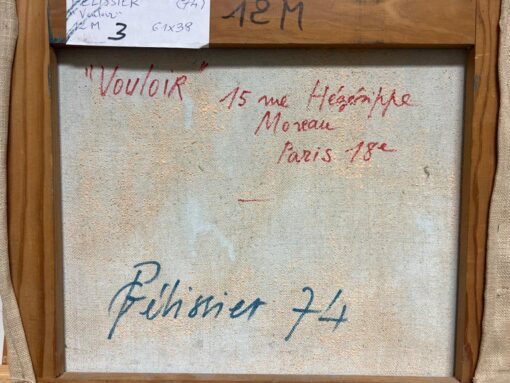 PELISSIER (74)
"Vouloir"
12 M 61x38
3
12 M
"VOULOIR"
15 rue Hégésippe
Moreau
Paris 18e
Pélissier 74